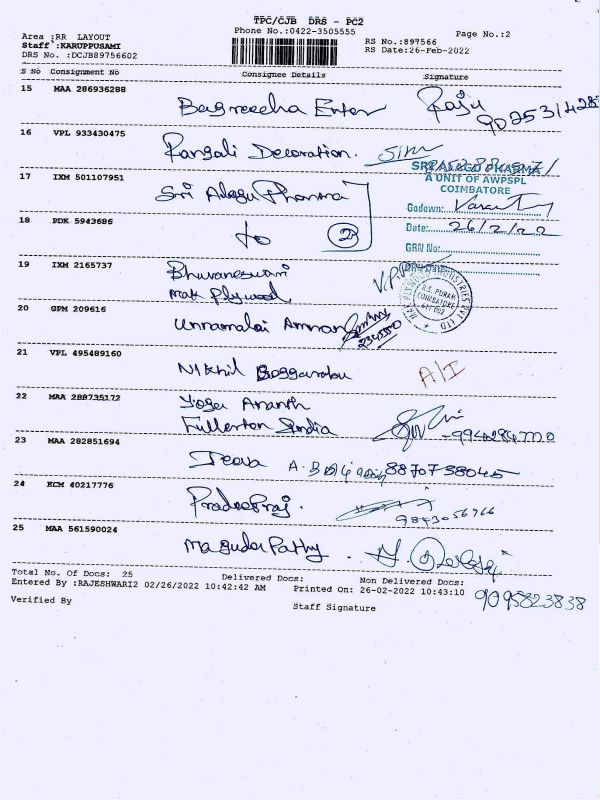 TPC/CJB DRS - PC2
Phone No.:0422-3505555
Page No.:2
Area :RR LAYOUT
Staff :KARUPPUSAMI
DRS No. :DCJB89756602
RS No.:897566
RS Date:26-Feb-2022
S No Consignment No Consignee Details Signature
15 MAA 286936288 Bagreecha Enter Raju
16 VPL 933430475 Rangoli Decoration.
SRI ALAGU PHARMA
A UNIT OF AWPSPL
COIMBATORE
17 IXM 501107951 Sri Alagu Pharma
Godown:
18 PDK 5943686 to 2
Date: 26/2/22
GRN No:
19 IXM 2165737 Bhuvaneswari
Mak Plywood
R.S. PURAM
COIMBATORE
20 GPM 209616 Unnamalai Amman
21 VPL 495489160 Nikhil A/I
22 MAA 288735172 Yoga Ananth
Fullerton India
23 MAA 282851694 Jeeva 8870738045
24 KCM 40217776 Pradeepraj. 9843056966
25 MAA 561590024 Magudapathy.
Total No. Of Docs: 25 Delivered Docs: Non Delivered Docs:
Entered By :RAJESHWARI2 02/26/2022 10:42:42 AM Printed On: 26-02-2022 10:43:10
9095823838
Verified By Staff Signature